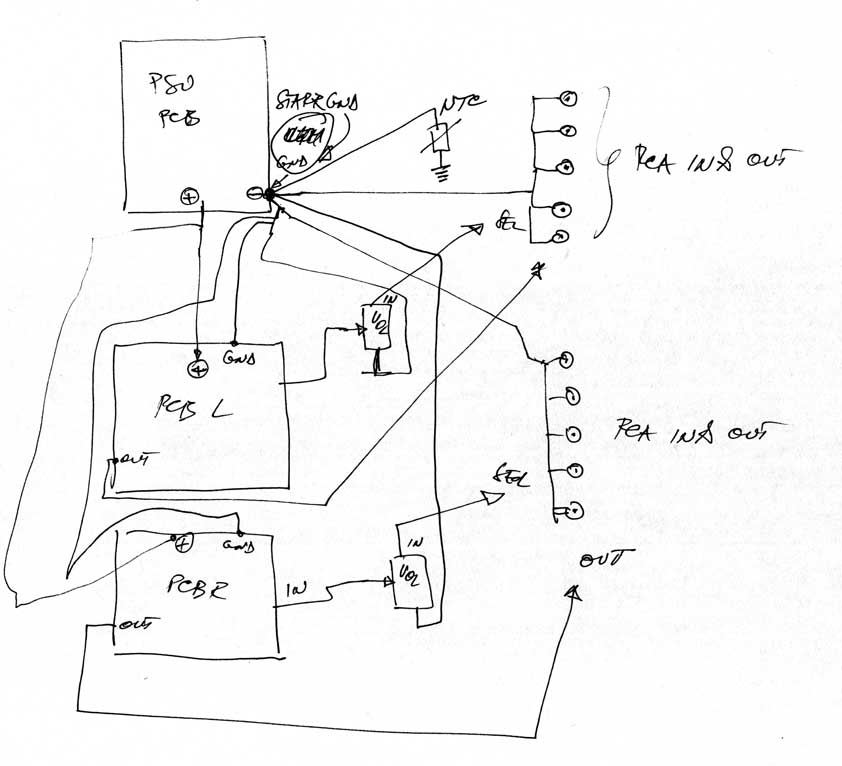 PSU
PCB
STARR GND
GND
NTC
RCA INS OUT
SEL
IN
VOL
GND
PCB L
OUT
RCA INS OUT
SEL
IN
VOL
GND
PCB R
IN
OUT
OUT